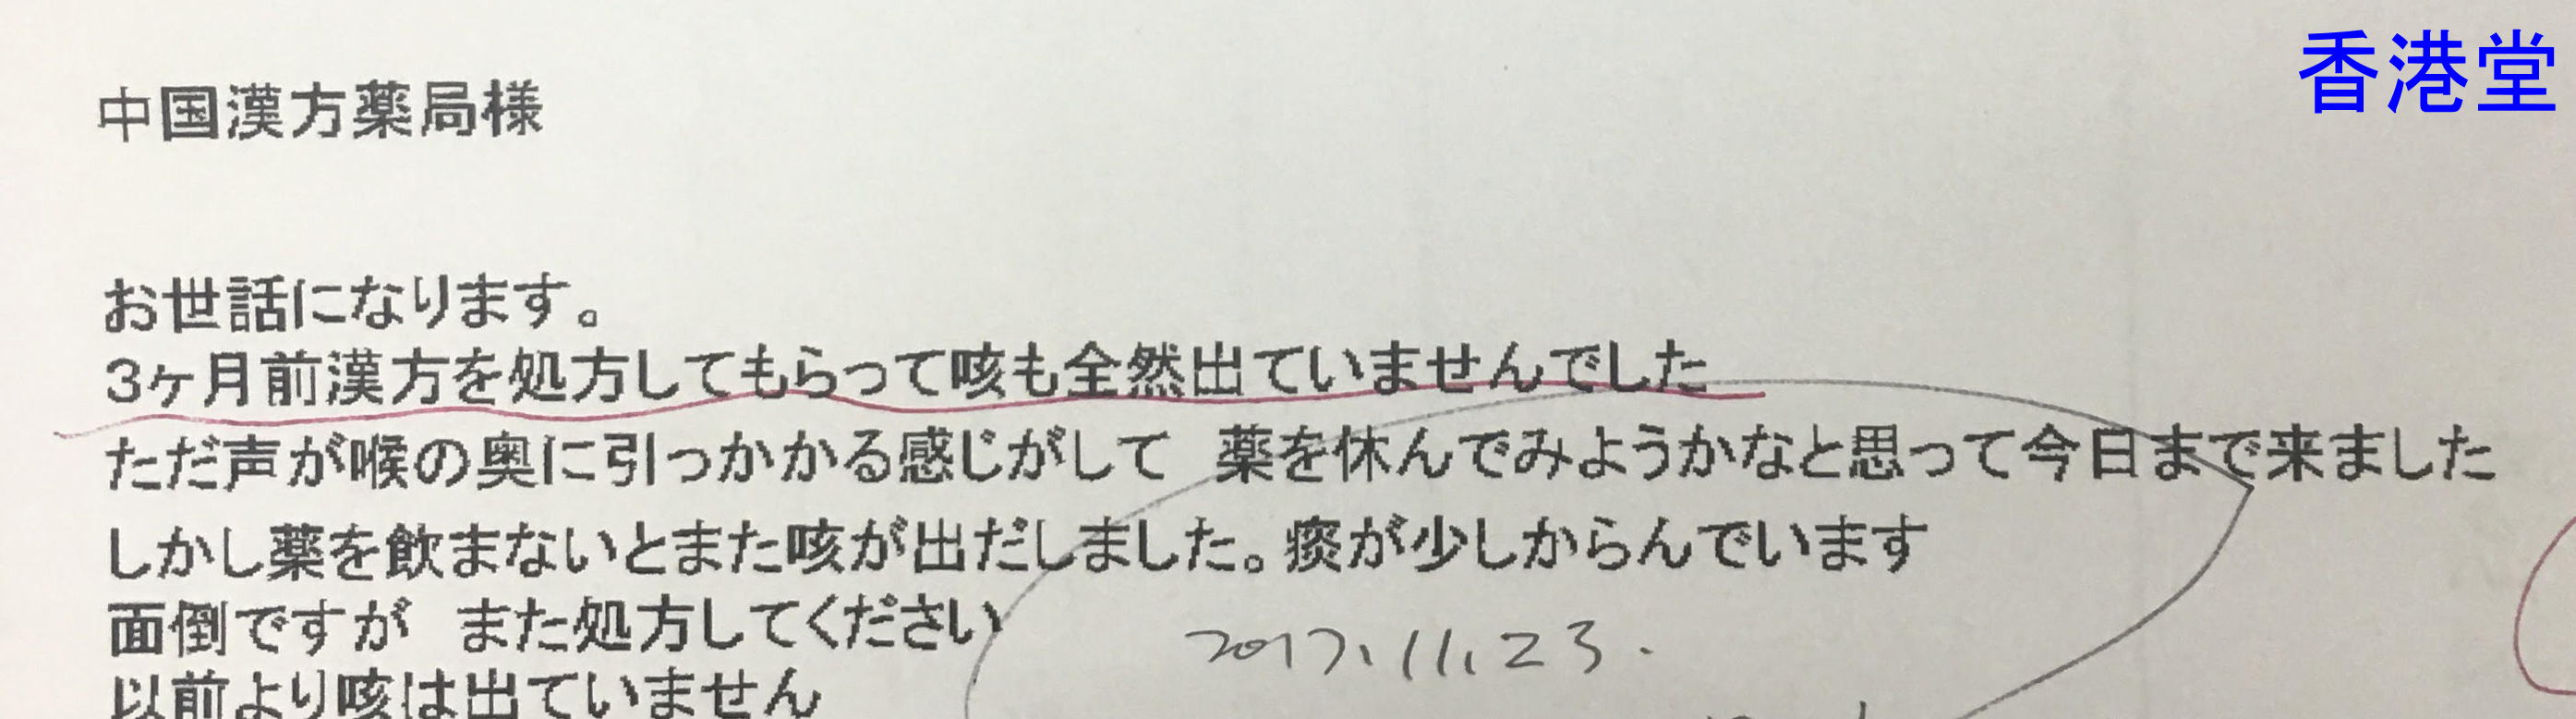 香港堂
中国漢方薬局様
お世話になります。
3ヶ月前漢方を処方してもらって咳も全然出ていませんでした
ただ声が喉の奥に引っかかる感じがして 薬を休んでみようかなと思って今日まで来ました
しかし薬を飲まないとまた咳が出だしました。痰が少しからんでいます
面倒ですが また処方してください
2017.11.23.
以前より咳は出ていません